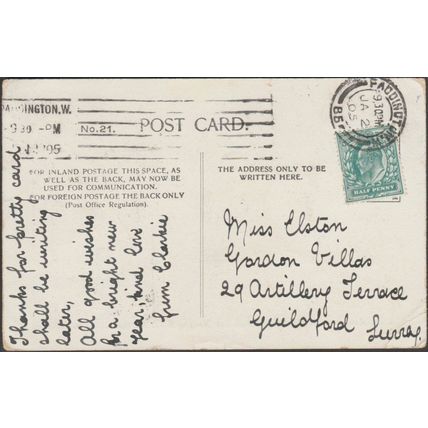 PADDINGTON.W.
9 30 PM
No. 21.
POST CARD.
PADDINGTON
9.30PM
JA 2
05
85
HALF PENNY
FOR INLAND POSTAGE THIS SPACE, AS
WELL AS THE BACK, MAY NOW BE
USED FOR COMMUNICATION.
FOR FOREIGN POSTAGE THE BACK ONLY
(Post Office Regulation).
THE ADDRESS ONLY TO BE
WRITTEN HERE.
Thanks for pretty card
shall be writing
later,
All good wishes
for a bright new
year, and love
from Clarkie
Miss Elston
Gordon Villas
29 Artillery Terrace
Guildford
Surrey